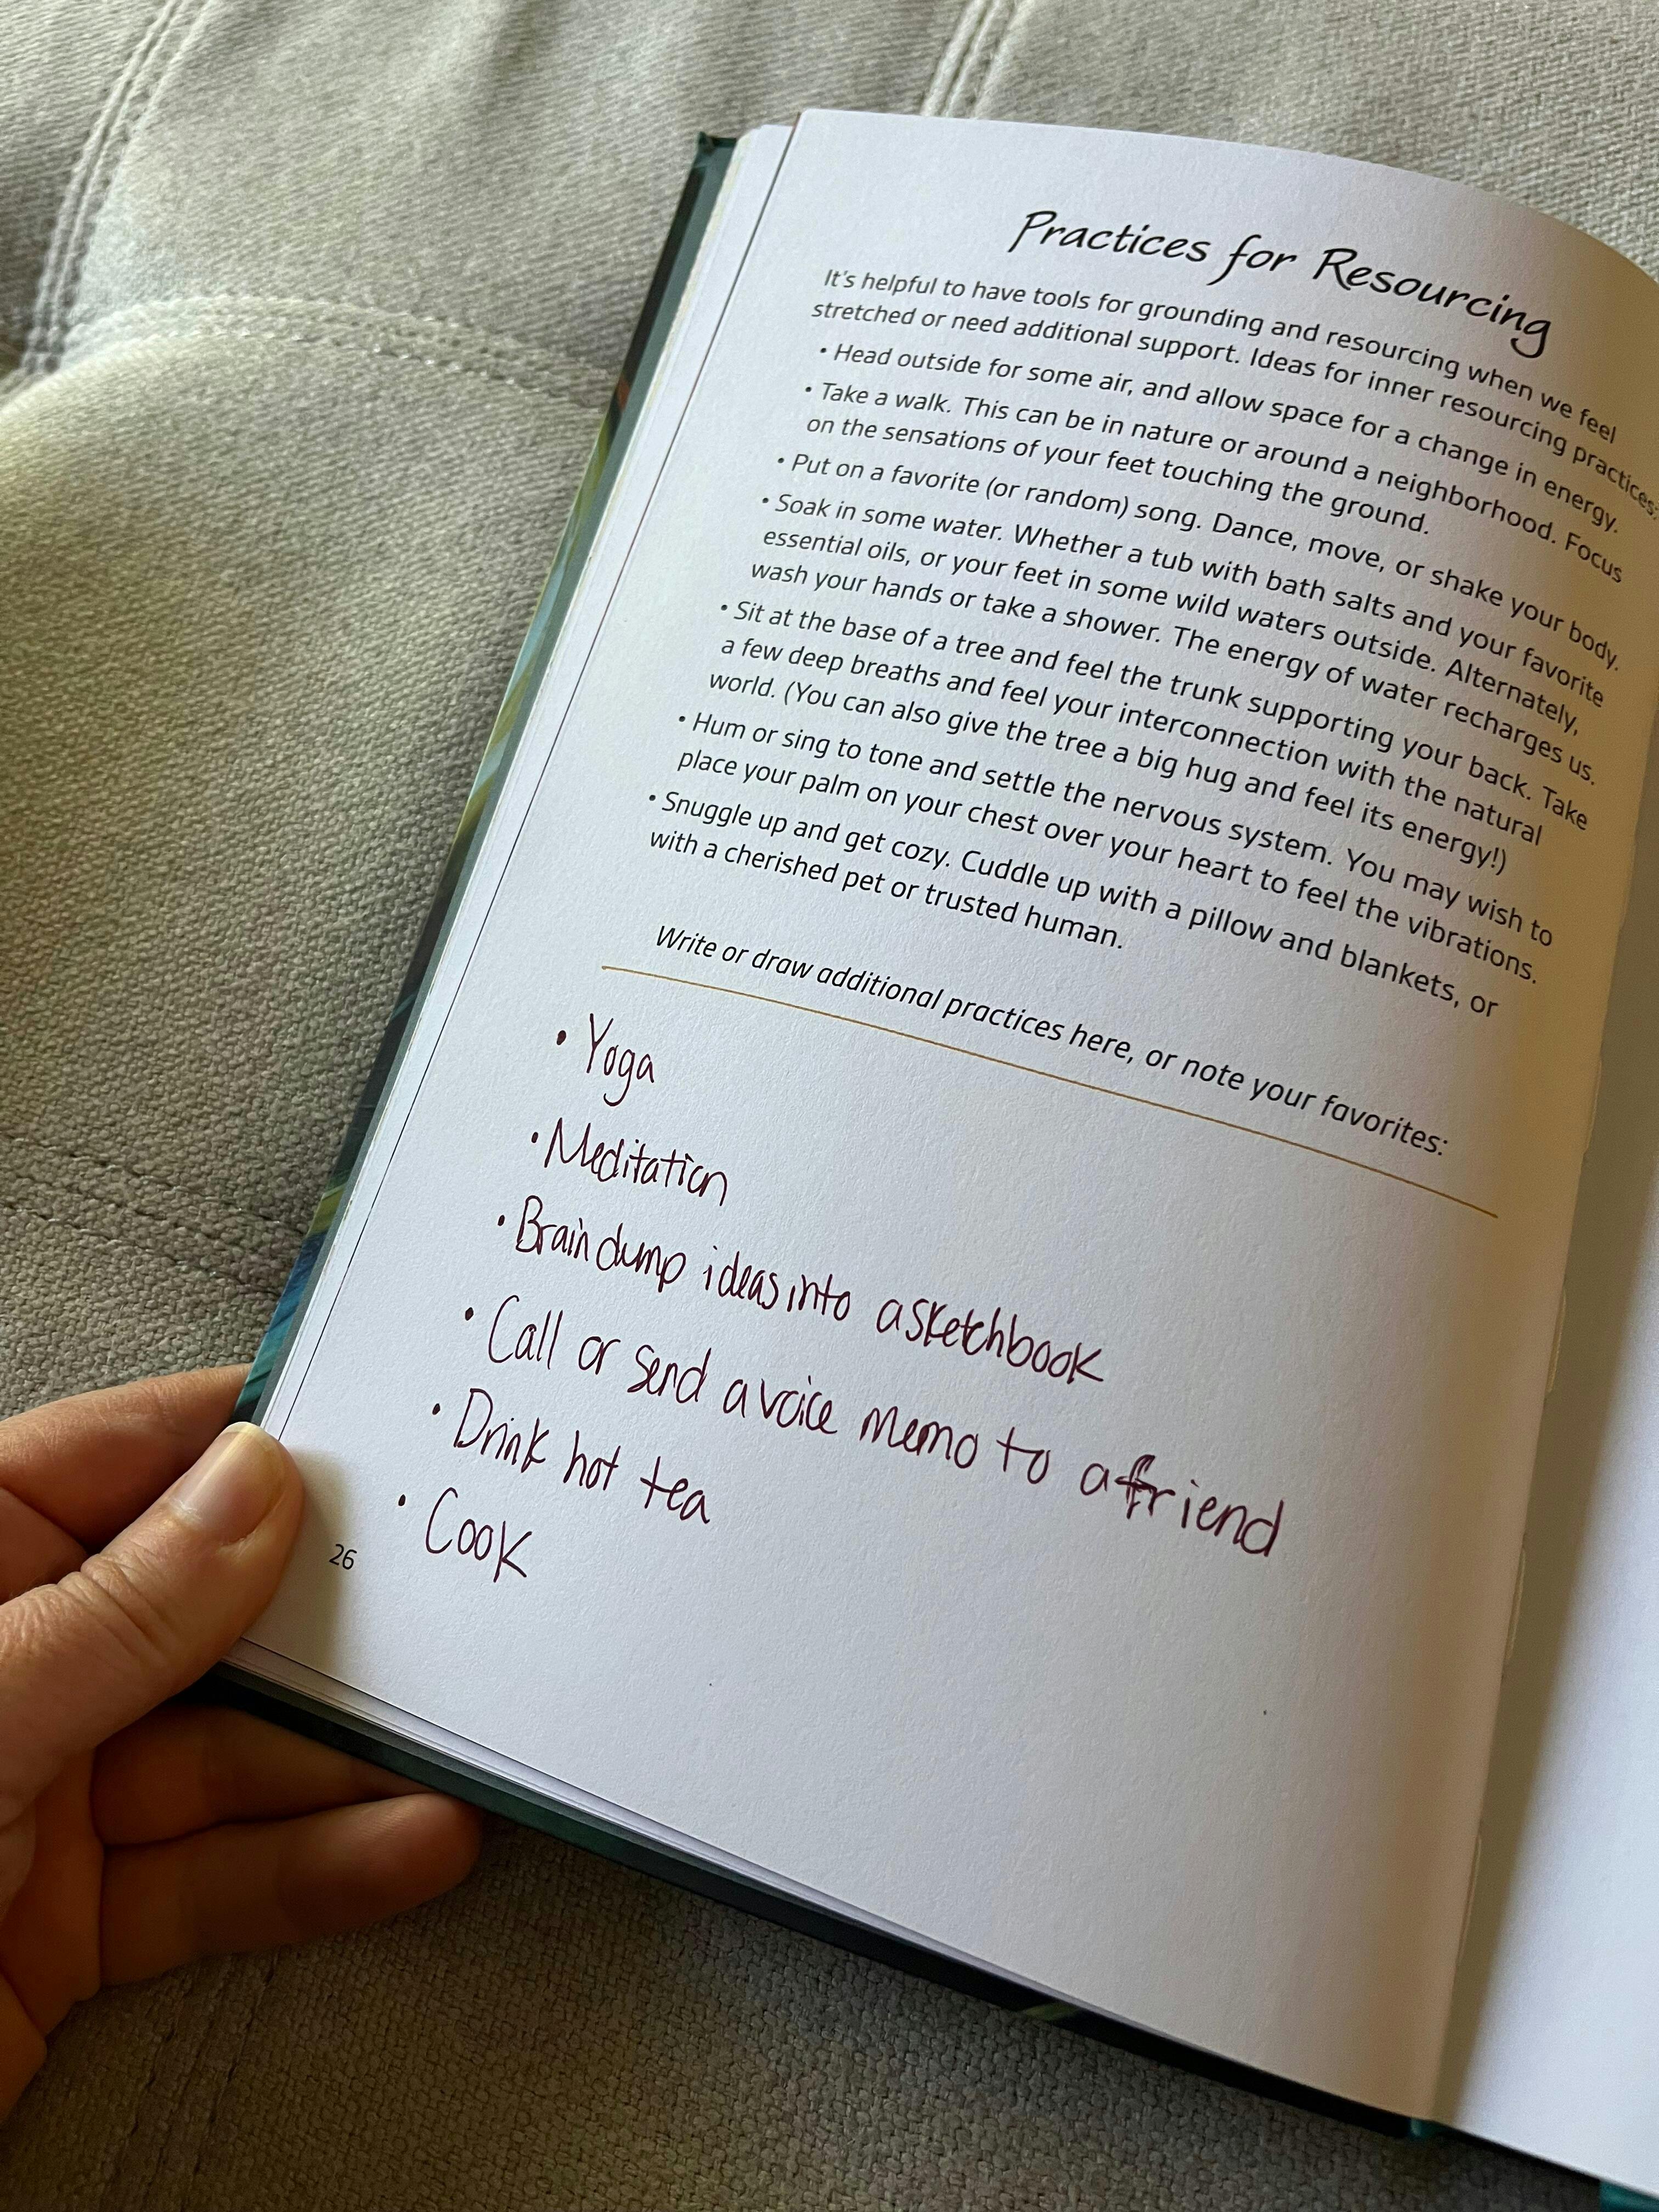 Practices for Resourcing
It's helpful to have tools for grounding and resourcing when we feel
stretched or need additional support. Ideas for inner resourcing practices:
• Head outside for some air, and allow space for a change in energy.
• Take a walk. This can be in nature or around a neighborhood. Focus
on the sensations of your feet touching the ground.
• Put on a favorite (or random) song. Dance, move, or shake your body.
• Soak in some water. Whether a tub with bath salts and your favorite
essential oils, or your feet in some wild waters outside. Alternately,
wash your hands or take a shower. The energy of water recharges us.
• Sit at the base of a tree and feel the trunk supporting your back. Take
a few deep breaths and feel your interconnection with the natural
world. (You can also give the tree a big hug and feel its energy!)
• Hum or sing to tone and settle the nervous system. You may wish to
place your palm on your chest over your heart to feel the vibrations.
• Snuggle up and get cozy. Cuddle up with a pillow and blankets, or
with a cherished pet or trusted human.
Write or draw additional practices here, or note your favorites:
• Yoga
• Meditation
• Brain dump ideas into a sketchbook
• Call or send a voice memo to a friend
• Drink hot tea
• Cook
26